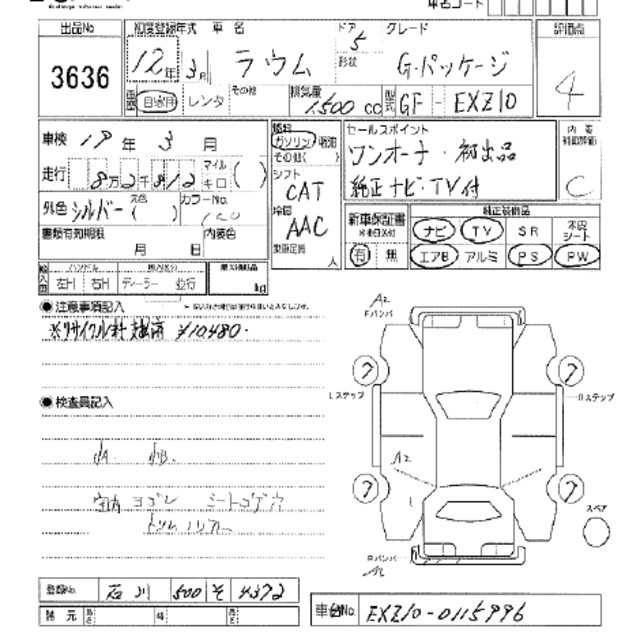 車名コード
出品No 初度登録年式 車名 ドア グレード 評価点
3636 12年 3月 ラウム 5 G-パッケージ 4
形状
自家用 レンタ その他 排気量 1500 cc 型式 GF - EXZ10
車検 19年 3月
燃料 ガソリン 軽油 その他( )
セールスポイント
ワンオーナー・初出品
純正ナビ・TV付
内装 C
走行 8万2千812 マイル キロ ( )
シフト CAT
外色 シルバー 元色 ( ) カラーNo. 1C0
冷房 AAC
乗車定員 人
書類有効期限 月 日 内装色
新車保証書 有 無
純正装備品
ナビ TV SR 本皮シート
エアB アルミ PS PW
輸入車 ハンドル 左H 右H ディーラー 並行 最大積載量 kg
●注意事項記入
※リサイクル料 預託済 ¥10,480-
A2
Fバンパ
Lステップ
Rステップ
●検査員記入
小A. 小B.
A2
室内ヨゴレ シートコゲ穴
スペア
Rバンパ
A2
登録No. 石川 500 そ 4372
諸元 長さ 幅 高さ
車台No. EXZ10-0115996